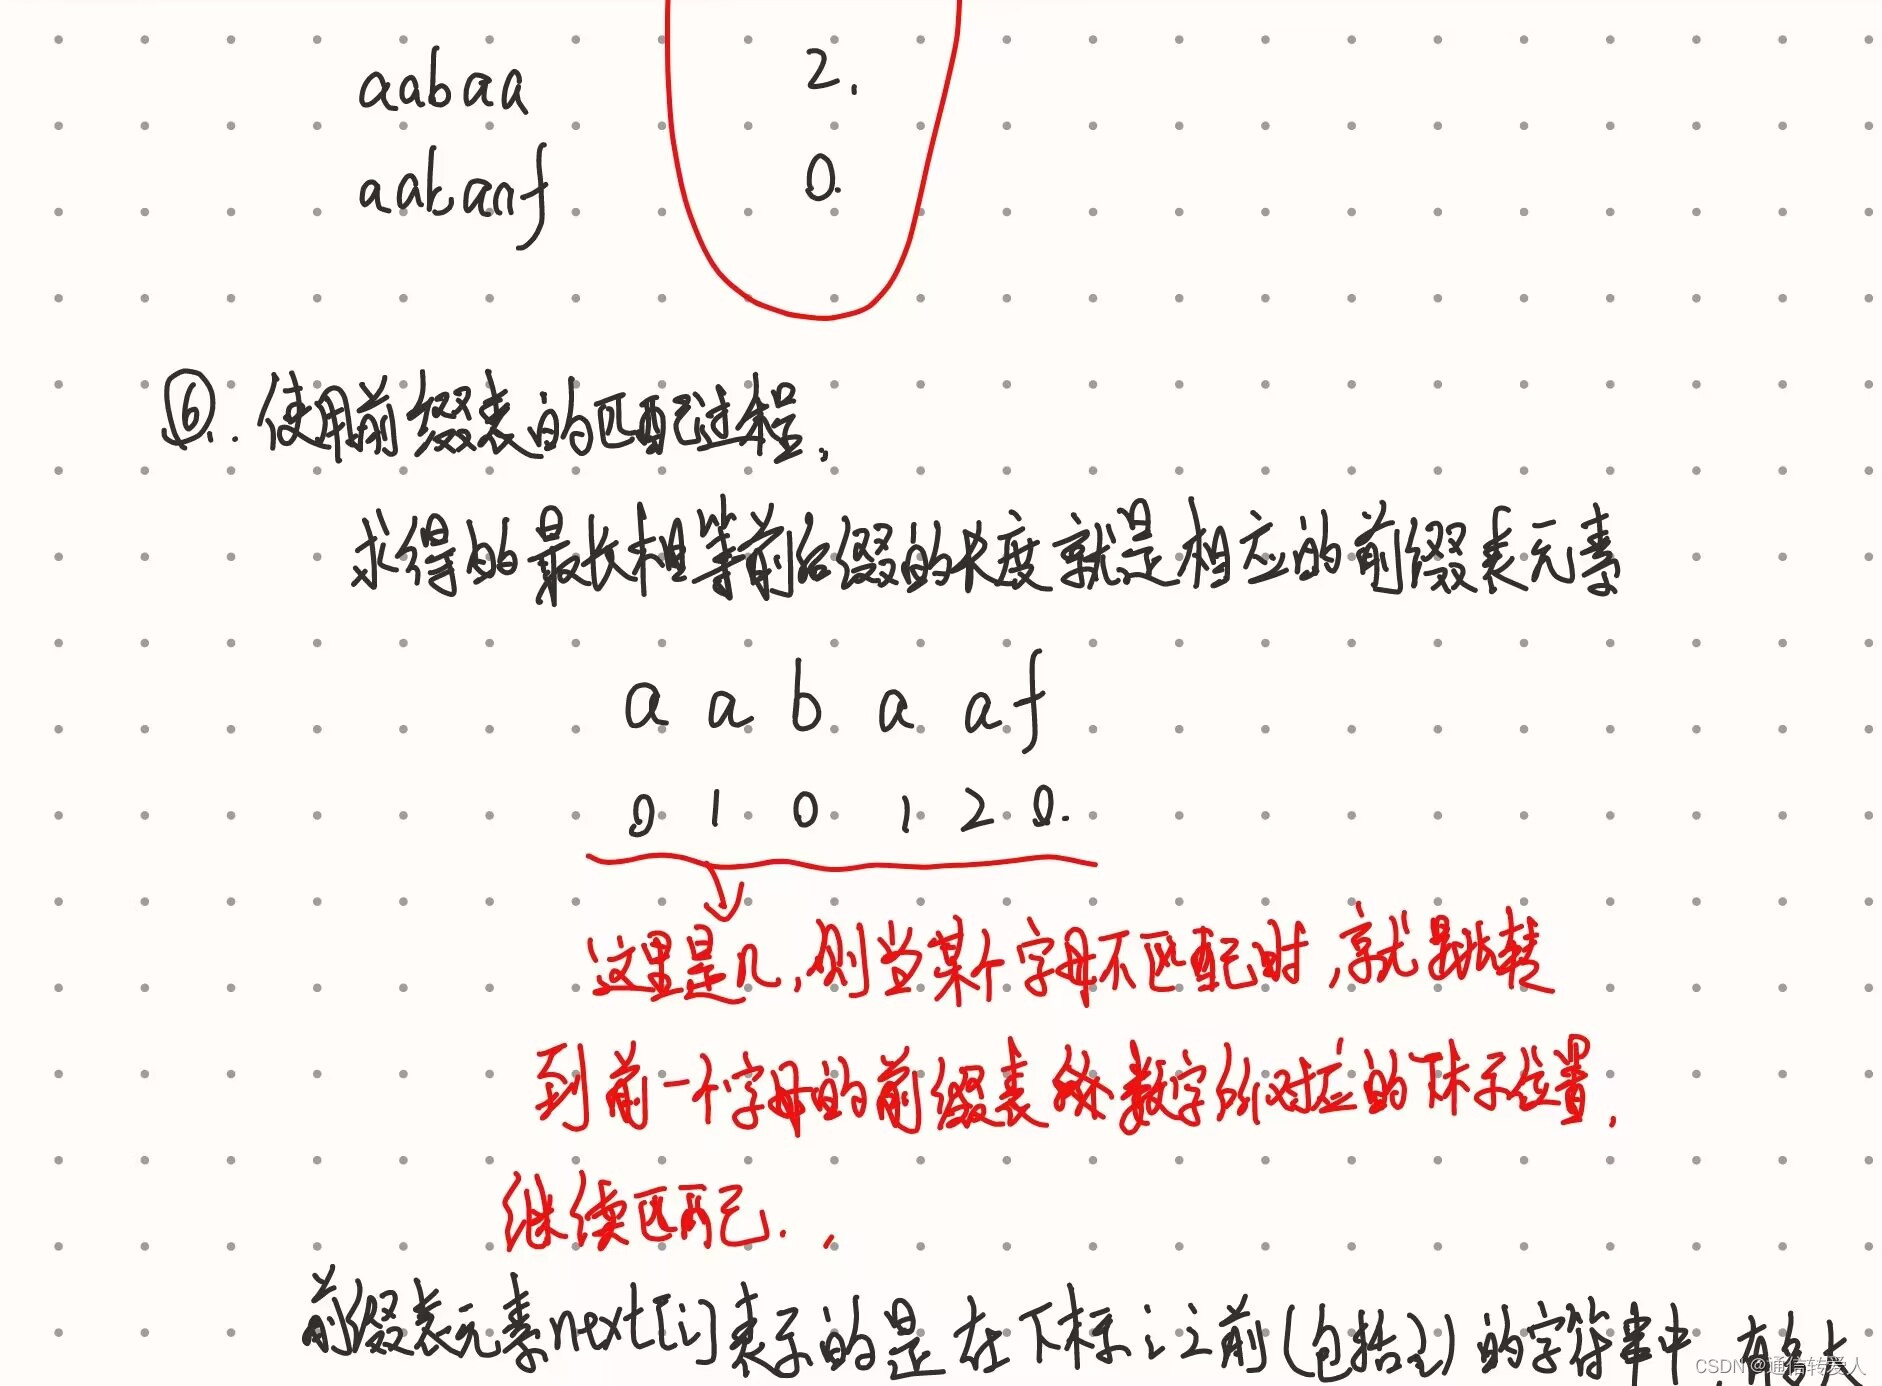 aabaa 2.
aabaaf 0.
⑥. 使用前缀表的匹配过程.
求得的最长相等前后缀的长度就是相应的前缀表元素
a a b a a f
0 1 0 1 2 0.
这里是几,则当某个字母不匹配时,就跳转
到前一个字母的前缀表 数字所对应的下标位置.
继续匹配.
前缀表元素next[i]表示的是在下标i之前(包括i)的字符串中,有多大
CSDN @通信转爱人